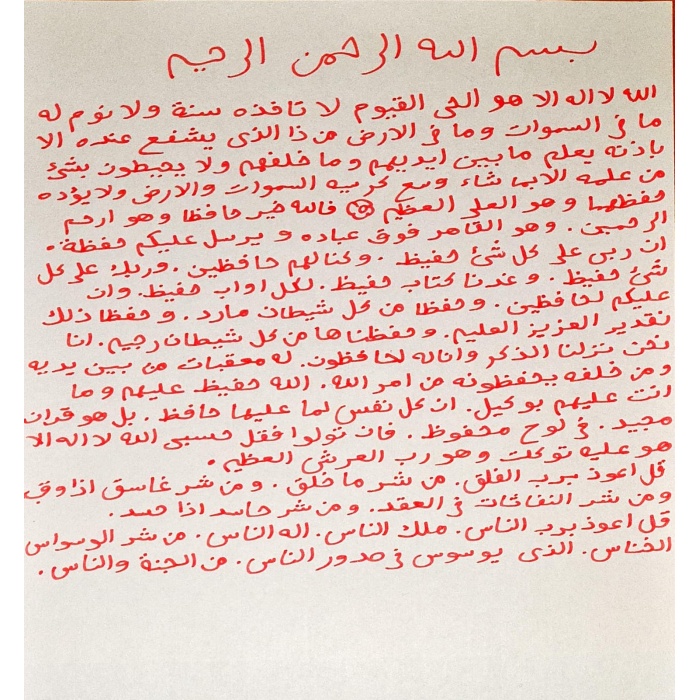 بسم الله الرحمن الرحيم
الله لا اله الا هو الحى القيوم لا تاخذه سنة ولا نوم له
ما فى السموات وما فى الارض من ذا الذى يشفع عنده الا
باذنه يعلم ما بين ايديهم وما خلفهم ولا يحيطون بشئ
من علمه الا بما شاء وسع كرسيه السموات والارض ولا يؤده
حفظهما وهو العلى العظيم فالله خير حافظا وهو ارحم
الرحمين . وهو القاهر فوق عباده و يرسل عليكم حفظة .
ان ربى على كل شئ حفيظ . وكنا لهم حافظين . وربك على كل
شئ حفيظ . و عندنا كتاب حفيظ . لكل اواب حفيظ . وان
عليكم لحافظين . وحفظا من كل شيطان مارد . و حفظا ذلك
تقدير العزيز العليم . وحفظناها من كل شيطان رجيم . انا
نحن نزلنا الذكر وانا له لحافظون . له معقبات من بين يديه
ومن خلفه يحفظونه من امر الله . الله حفيظ عليهم وما
انت عليهم بوكيل . ان كل نفس لما عليها حافظ . بل هو قران
مجيد . فى لوح محفوظ . فان تولوا فقل حسبى الله لا اله الا
هو عليه توكلت وهو رب العرش العظيم .
قل اعوذ برب الفلق . من شر ما خلق . ومن شر غاسق اذا وقب
ومن شر النفاثات فى العقد . ومن شر حاسد اذا حسد .
قل اعوذ برب الناس . ملك الناس . اله الناس . من شر الوسواس
الخناس . الذى يوسوس فى صدور الناس . من الجنة والناس .